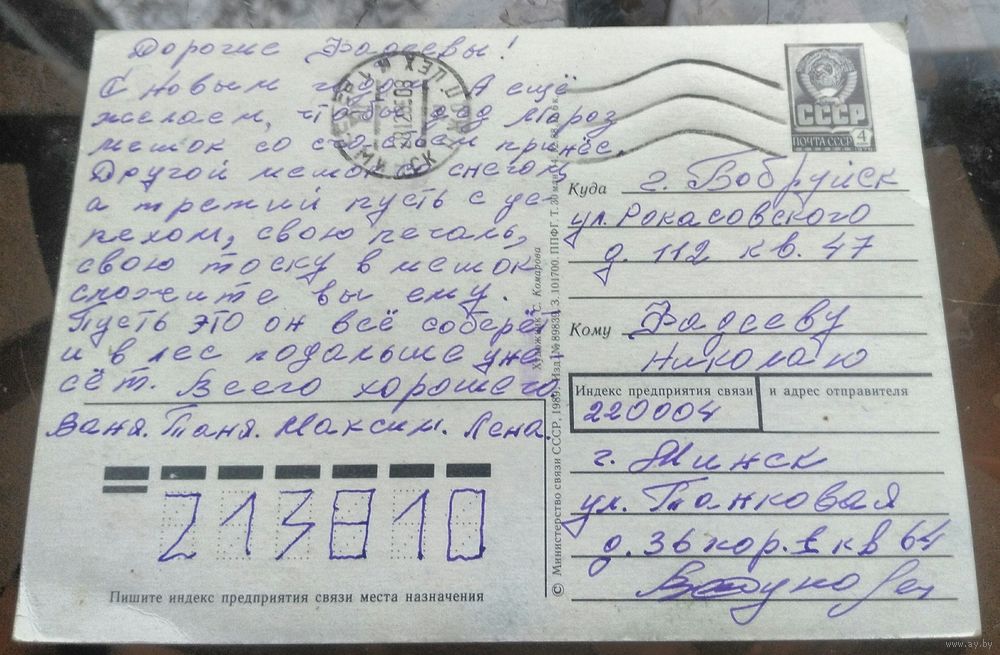 Дорогие Фадеевы!
С Новым годом. А ещё
желаем, чтобы дед Мороз
мешок со счастьем принёс.
Другой мешок с снегом,
а третий пусть с ус-
пехом, свою печаль,
свою тоску в мешок
сложите вы ему.
Пусть это он всё соберёт
и в лес подальше уне
сёт. Всего хорошего.
Ваня. Таня. Максим. Лена.
213810
Пишите индекс предприятия связи места назначения
© Министерство связи СССР, 1989. Изд. № 89839. З. 101700. ППФГ. Т. 30 млн.
Художник С. Комарова
СССР
ПОЧТА СССР 4
Куда г. Бобруйск
ул. Рокасовского
д. 112 кв. 47
Кому Фадееву
Николаю
Индекс предприятия связи и адрес отправителя
220004
г. Минск
ул. Танковая
д. 36 кор. 1 кв 64
www.ay.by